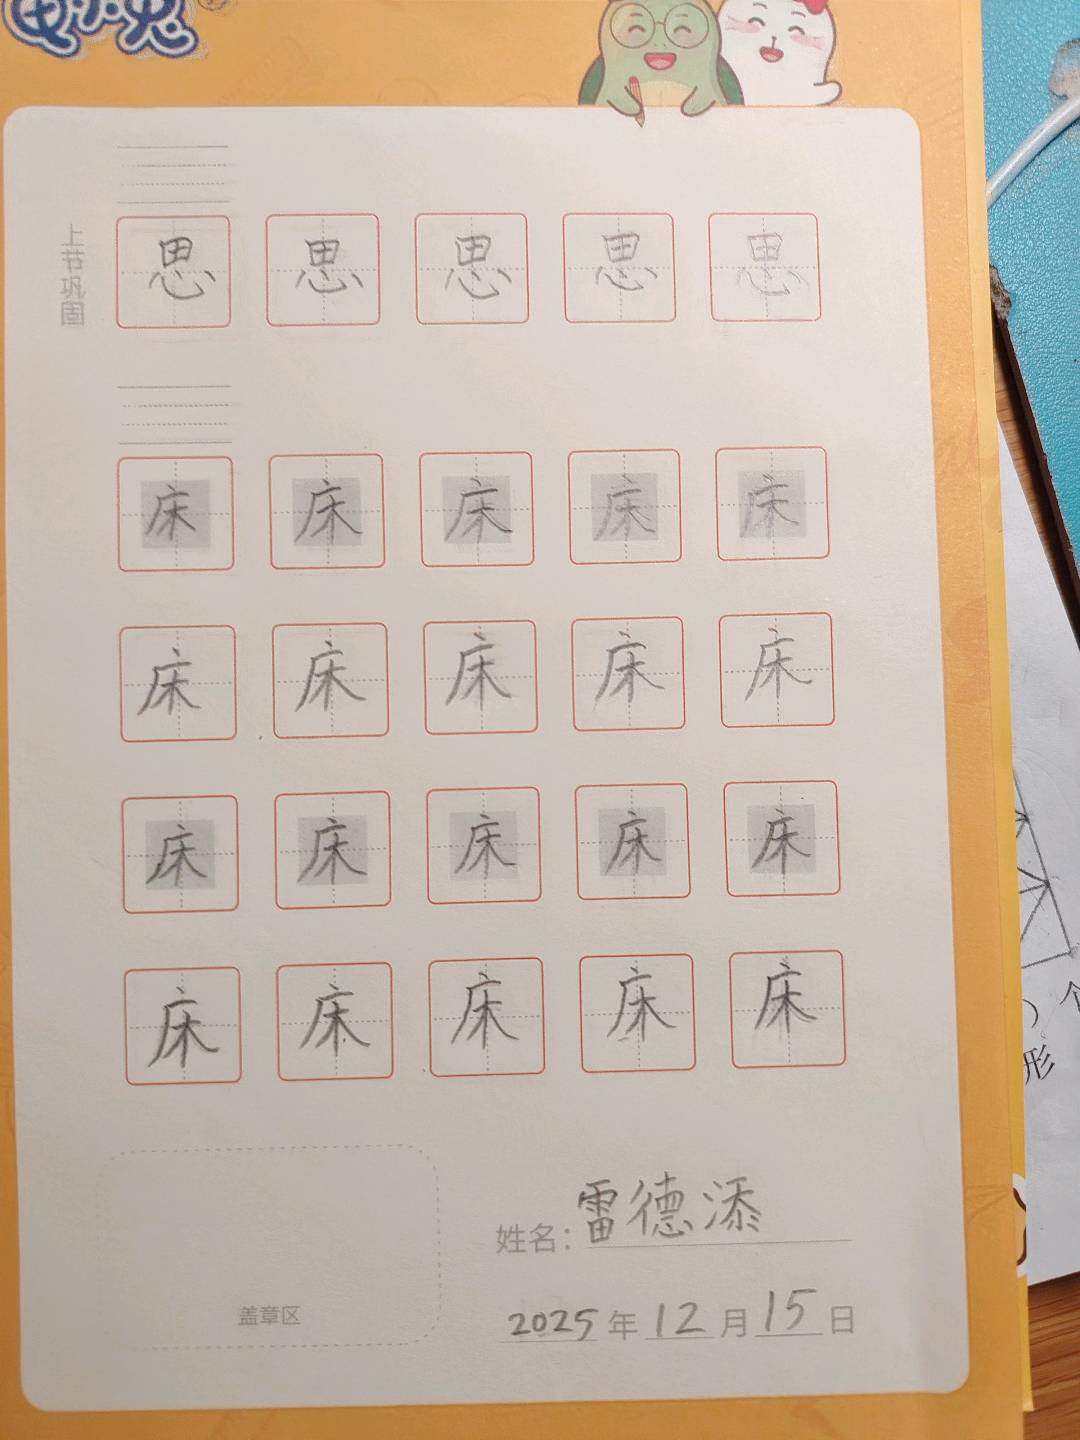 上节巩固
思 思 思 思 思
床 床 床 床 床
床 床 床 床 床
床 床 床 床 床
床 床 床 床 床
姓名：雷德添
盖章区
2025年12月15日
个
形